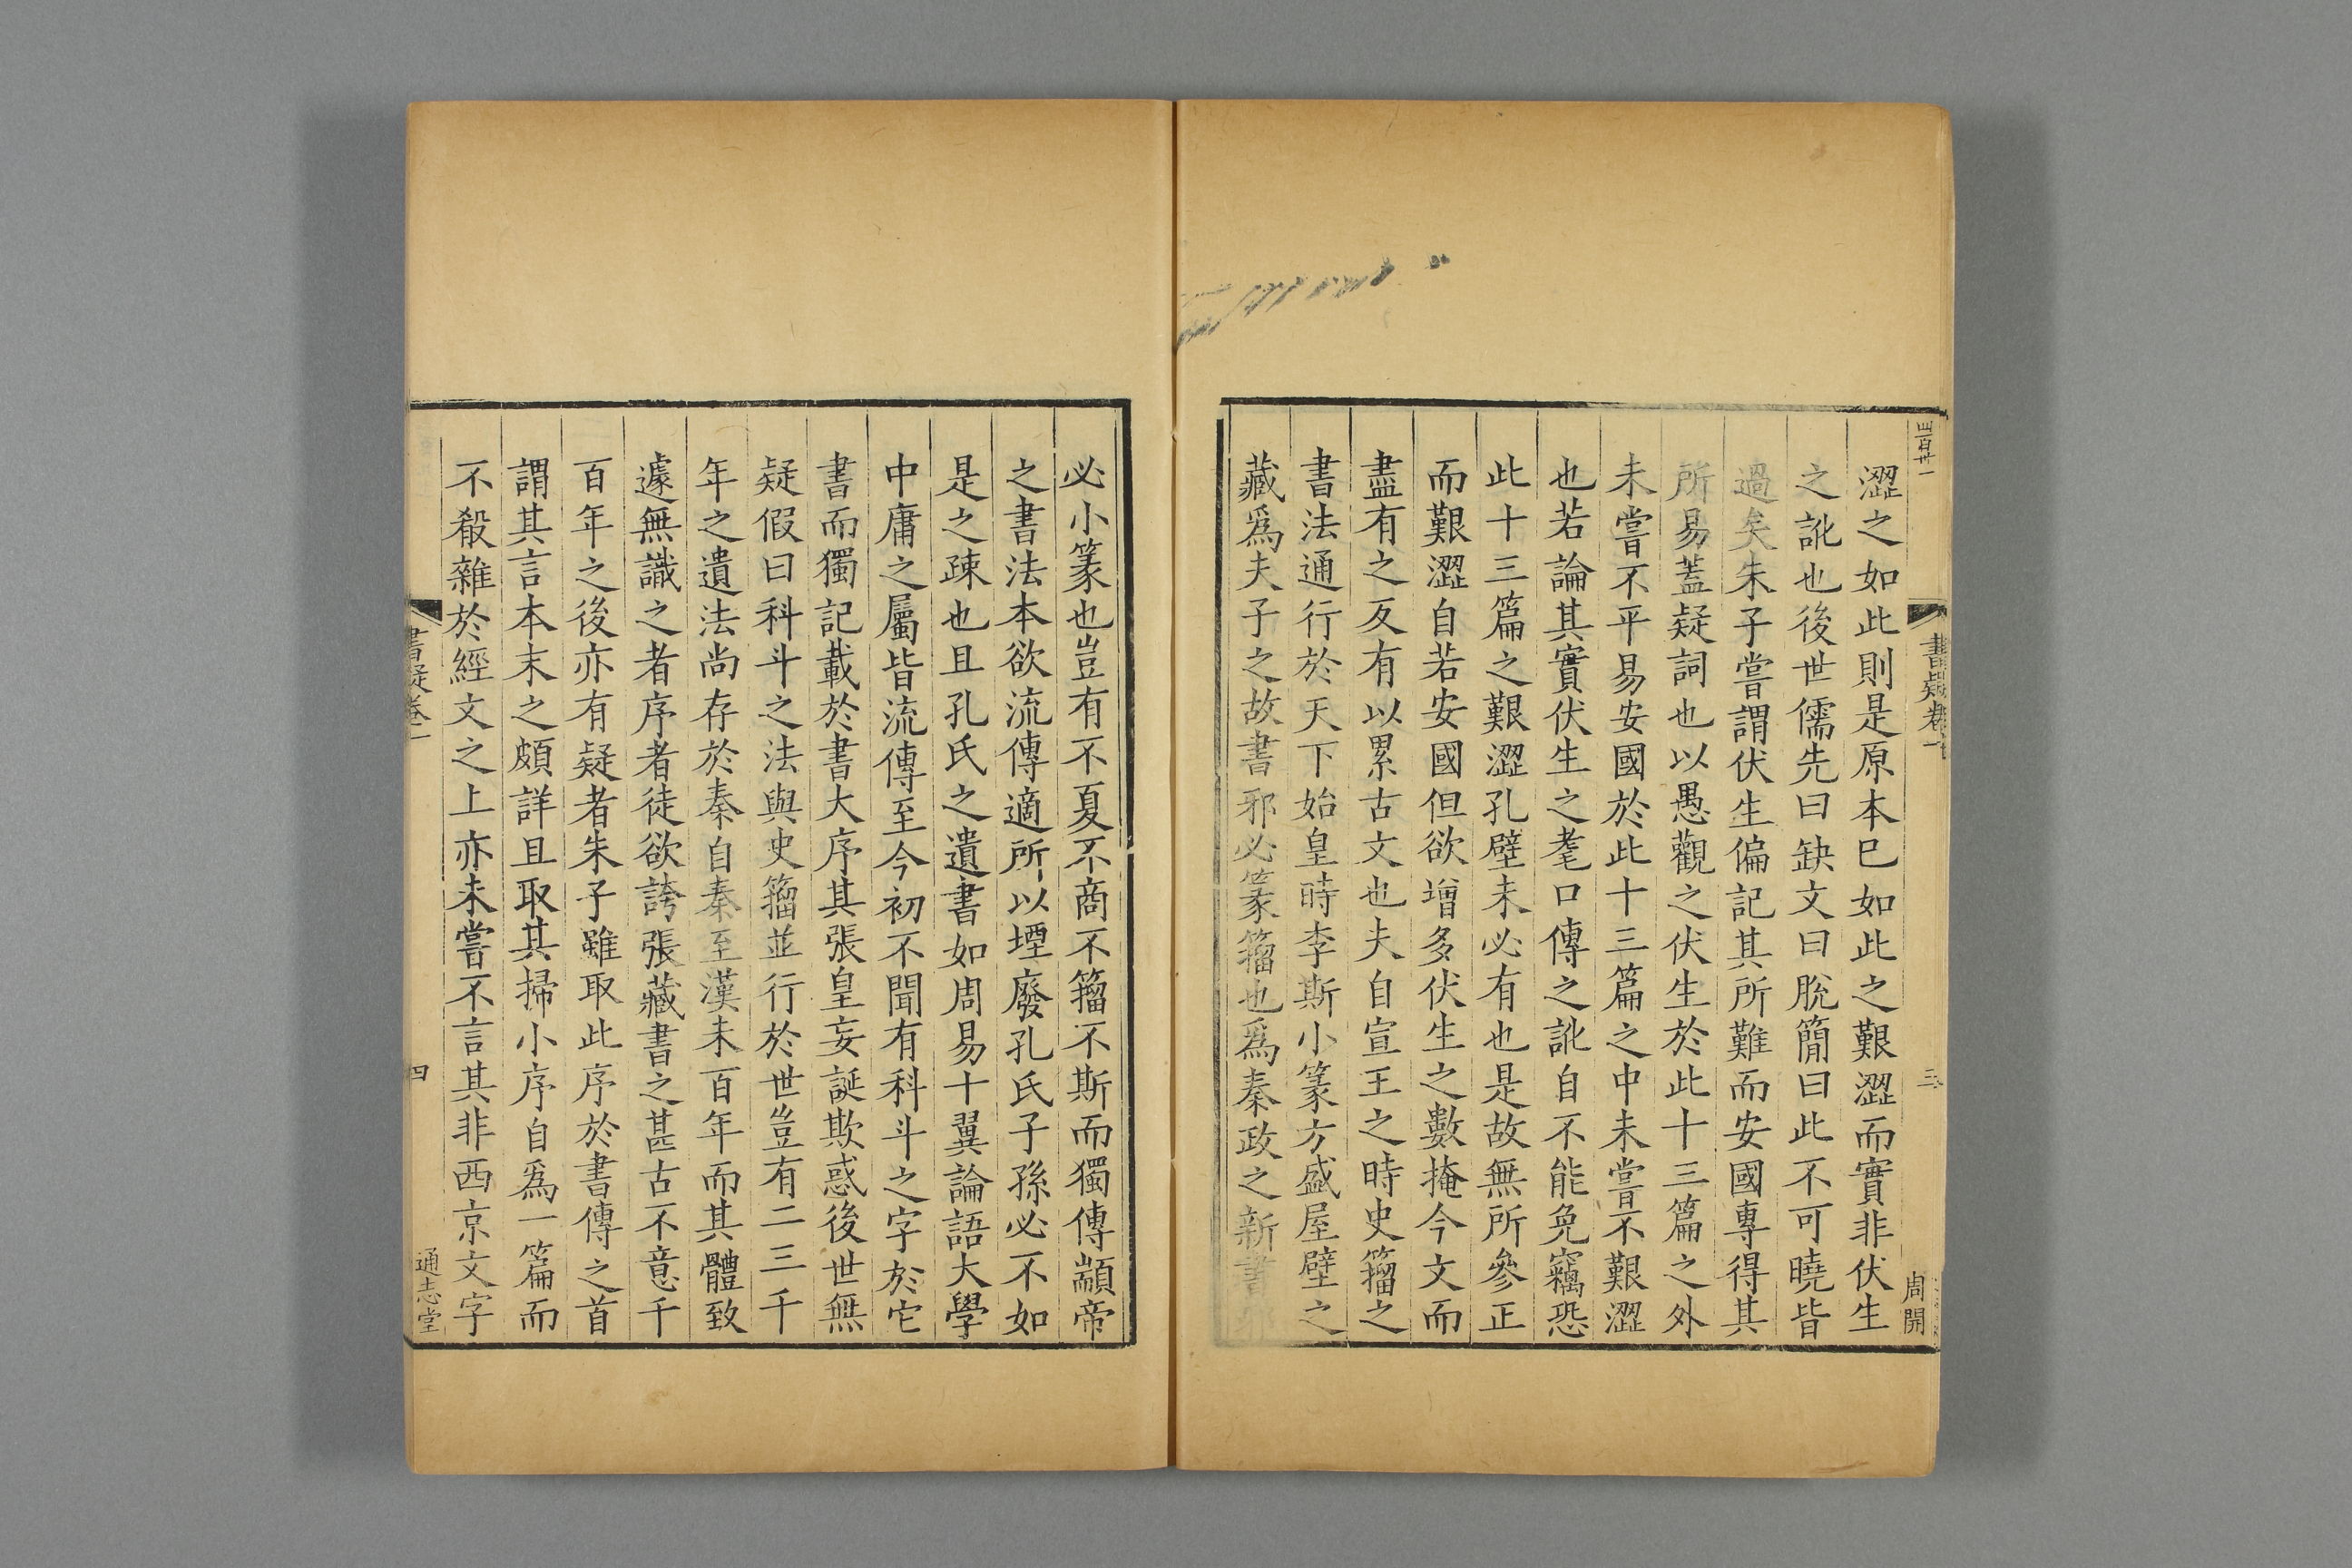 四百卅一
書疑卷一
三
周開
澀之如此則是原本已如此之艱澀而實非伏生
之訛也後世儒先曰缺文曰脫簡曰此不可曉皆
過矣朱子嘗謂伏生偏記其所難而安國專得其
所易蓋疑詞也以愚觀之伏生於此十三篇之外
未嘗不平易安國於此十三篇之中未嘗不艱澀
也若論其實伏生之耄口傳之訛自不能免竊恐
此十三篇之艱澀孔壁未必有也是故無所參正
而艱澀自若安國但欲增多伏生之數掩今文而
盡有之反有以累古文也夫自宣王之時史籀之
書法通行於天下始皇時李斯小篆方盛屋壁之
藏爲夫子之故書邪必篆籀也爲秦政之新書邪
必小篆也豈有不夏不商不籀不斯而獨傳顓帝
之書法本欲流傳適所以堙廢孔氏子孫必不如
是之疎也且孔氏之遺書如周易十翼論語大學
中庸之屬皆流傳至今初不聞有科斗之字於它
書而獨記載於書大序其張皇妄誕欺惑後世無
疑假曰科斗之法與史籀並行於世豈有二三千
年之遺法尚存於秦自秦至漢未百年而其體致
遽無識之者序者徒欲誇張藏書之甚古不意千
百年之後亦有疑者朱子雖取此序於書傳之首
謂其言本末之頗詳且取其掃小序自爲一篇而
不殽雜於經文之上亦未嘗不言其非西京文字
書疑卷一
四
通志堂